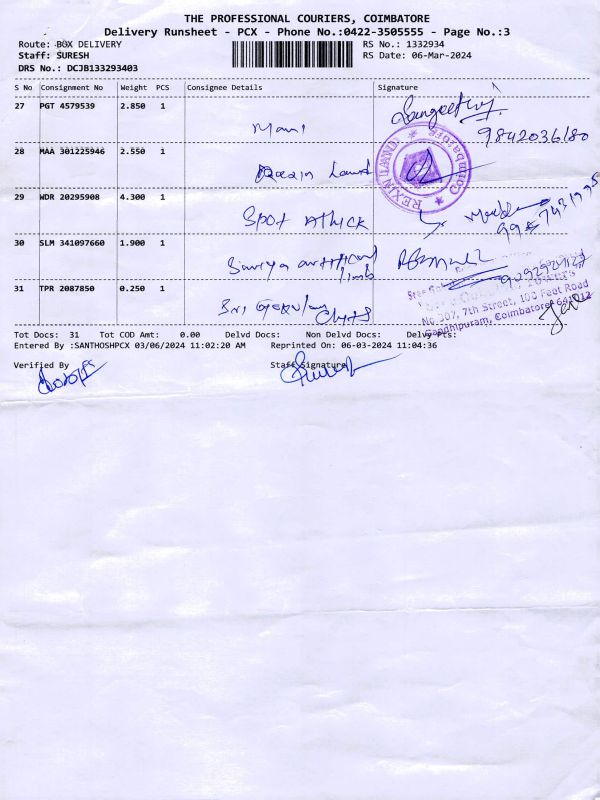 THE PROFESSIONAL COURIERS, COIMBATORE
Delivery Runsheet - PCX - Phone No.:0422-3505555 - Page No.:3
Route: BOX DELIVERY
Staff: SURESH
DRS No.: DCJB133293403
RS No.: 1332934
RS Date: 06-Mar-2024
S No Consignment No Weight PCS Consignee Details Signature
27 PGT 4579539 2.850 1
Mani
9842036180
28 MAA 301225946 2.550 1
REXIN LAND
Coimbatore
29 WDR 20295908 4.300 1
Spot
30 SLM 341097660 1.900 1
Suriya artificial limb
31 TPR 2087850 0.250 1
Sri
No 307, 7th Street, 100 Feet Road
Gandhipuram, Coimbatore 641012
Tot Docs: 31 Tot COD Amt: 0.00 Delvd Docs: Non Delvd Docs: Delvy Pts:
Entered By :SANTHOSHPCX 03/06/2024 11:02:20 AM Reprinted On: 06-03-2024 11:04:36
Verified By Staff Signature